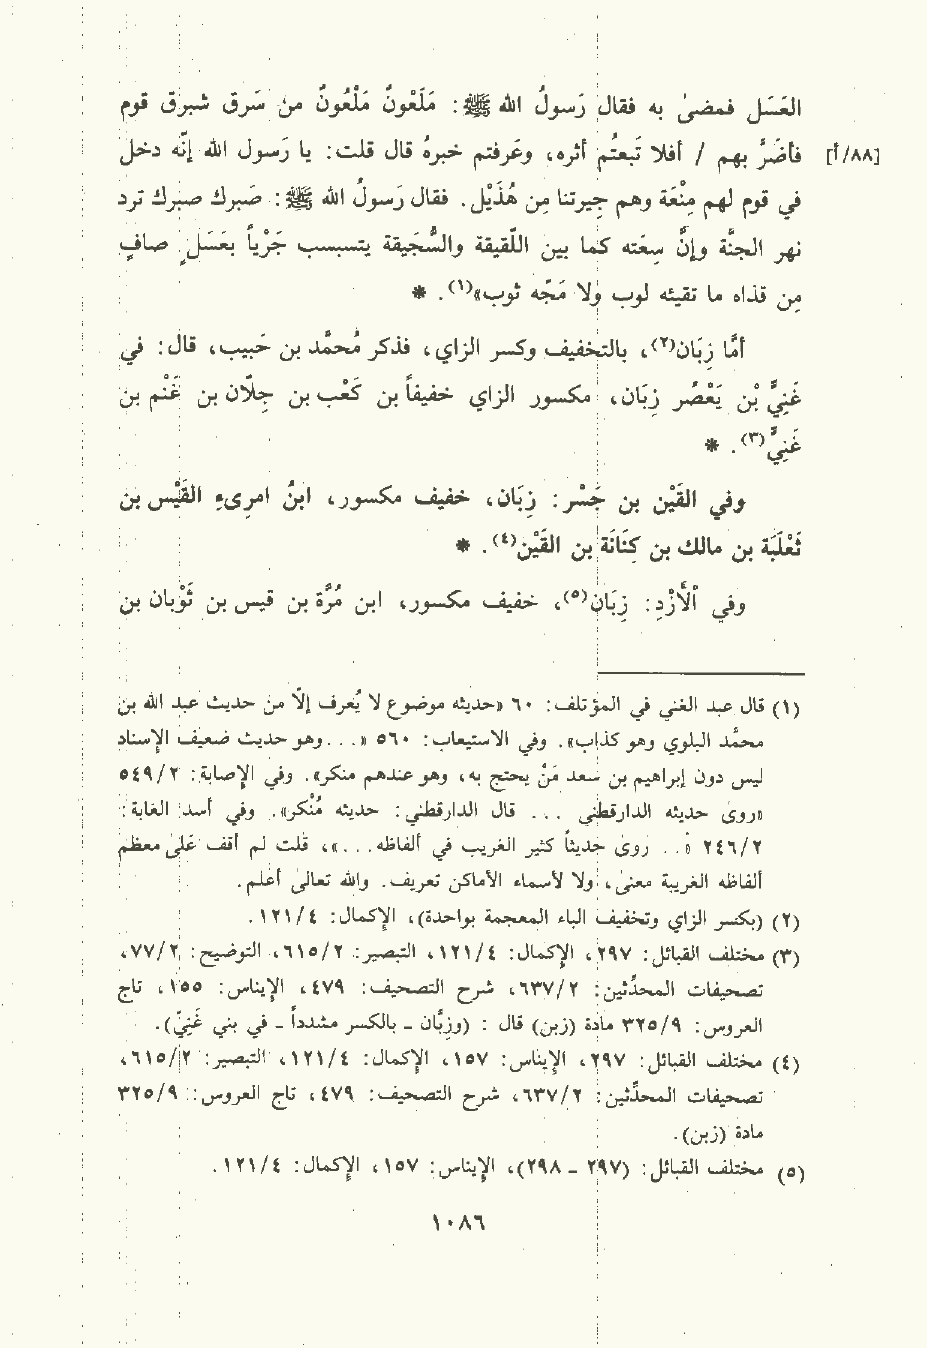 العَسَل فمضىٰ به فقال رسولُ الله ﷺ: مَلْعُونٌ مَلْعُونٌ من سَرق شبرق قوم
[٨٨/أ] فأضَرَّ بهم / أفلا تَبعتُم أثره، وعَرفتم خبرهُ قال قلت: يا رسول الله إنّه دخل
في قوم لهم مِنْعَة وهم جيرتنا من هُذَيْل. فقال رسولُ الله ﷺ: صَبرك صبرك ترد
نهر الجنَّة وإنَّ سِعَته كما بين اللَّقيقة والسُّجَيقة يتسبسب جَرْياً بعَسَلٍ صافٍ
مِن قذاه ما تقيئه لوب ولا مَجّه ثوب»(١). *
أمَّا زِبَان(٢)، بالتخفيف وكسر الزاي، فذكر مُحمَّد بن حَبيب، قال: في
غَنِيِّ بْن يَعْصُر زِبَان، مكسور الزاي خفيفاً بن كَعْب بن جِلّان بن غَنْم بن
غَنِيٍّ(٣). *
وفي القَيْن بن جَسْر: زِبَان، خفيف مكسور، ابنُ امرِىءِ القَيْس بن
ثَعْلَبَة بن مالك بن كِنَانَة بن القَيْن(٤). *
وفي الأَزْدِ: زِبَان(٥)، خفيف مكسور، ابن مُرَّة بن قيس بن ثَوْبان بن
(١) قال عبد الغني في المؤتلف: ٦٠ «حديثه موضوع لا يُعرف إلاّ من حديث عبد الله بن
محمَّد البلوي وهو كذاب». وفي الاستيعاب: ٥٦٠ «... وهو حديث ضعيف الإسناد
ليس دون إبراهيم بن سعد مَنْ يحتج به، وهو عندهم منكر». وفي الإصابة: ٥٤٩/٢
«روىٰ حديثه الدارقطني ... قال الدارقطني: حديثه مُنْكر». وفي أسد الغابة:
٢٤٦/٢ «.. روىٰ حديثاً كثير الغريب في ألفاظه...»، قلت لم أقف عَلىٰ معظم
ألفاظه الغريبة معنىٰ، ولا لأسماء الأماكن تعريف. والله تعالىٰ أعلم.
(٢) (بكسر الزاي وتخفيف الباء المعجمة بواحدة)، الإكمال: ١٢١/٤.
(٣) مختلف القبائل: ٢٩٧، الإكمال: ١٢١/٤، التبصير: ٦١٥/٢، التوضيح: ٧٧/٢،
تصحيفات المحدِّثين: ٦٣٧/٢، شرح التصحيف: ٤٧٩، الإيناس: ١٥٥، تاج
العروس: ٣٢٥/٩ مادة (زبن) قال: (وزِبَّان - بالكسر مشدداً - في بني غَنِيّ).
(٤) مختلف القبائل: ٢٩٧، الإيناس: ١٥٧، الإكمال: ١٢١/٤، التبصير: ٦١٥/٢،
تصحيفات المحدِّثين: ٦٣٧/٢، شرح التصحيف: ٤٧٩، تاج العروس: ٣٢٥/٩
مادة (زبن).
(٥) مختلف القبائل: (٢٩٧ - ٢٩٨)، الإيناس: ١٥٧، الإكمال: ١٢١/٤.
١٠٨٦